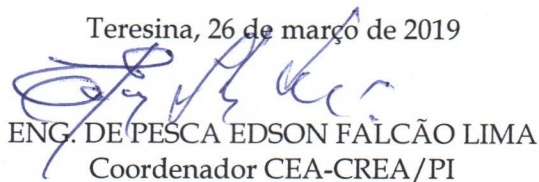 Teresina, 26 de março de 2019
ENG. DE PESCA EDSON FALCÃO LIMA
Coordenador CEA-CREA/PI